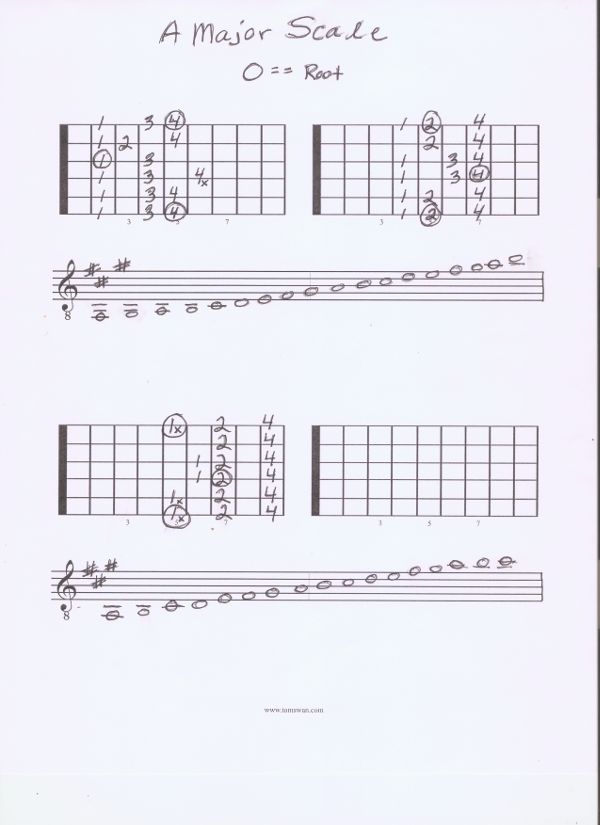 A Major Scale
O == Root
1 3 4
2 4
1 3
1 3 4x
1 3 4
1 3 4
3 5 7
1 2 4
2 4
1 3 4
1 3 4
1 2 4
1 2 4
3 5 7
8
1x 2 4
2 4
1 2 4
1 2 4
1x 2 4
1x 2 4
3 5 7
3 5 7
8
www.tomswan.com